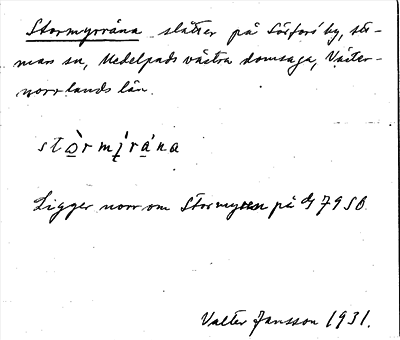 Stormyrråna slåtter på Sörfors by, stö-
mars sn, Medelpads västra domsaga, Väster-
norrlands län.
stòrmi̱rána
Ligger norr om Stormyren på G 7950.
Valter Jansson 1931.